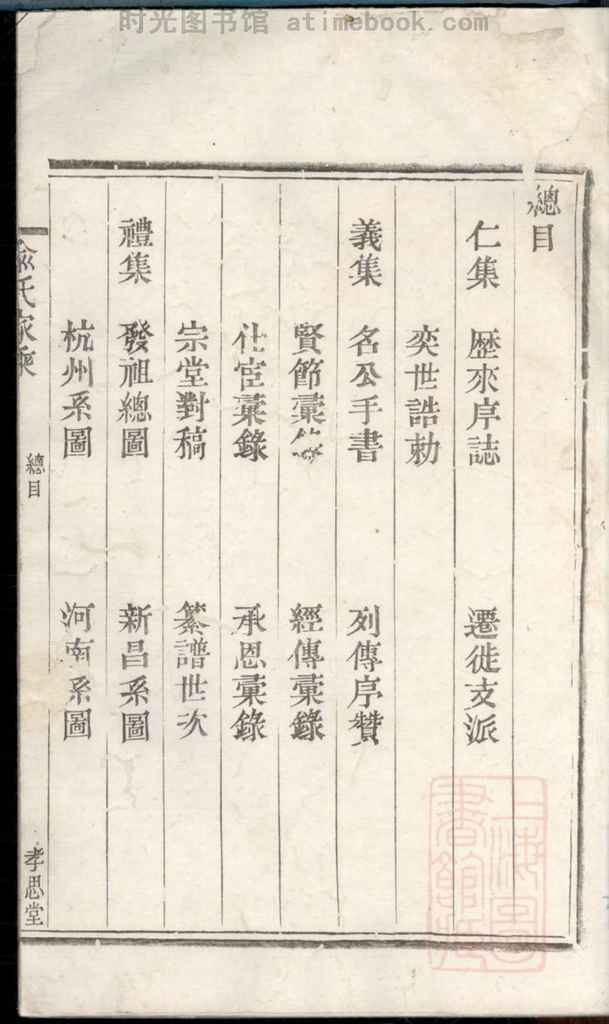 时光图书馆 atimebook.com
總目
仁集 歷來序誌 遷徙支派
奕世誥勅
義集 名公手書 列傳序贊
賢節彙錄 經傳彙錄
仕宦彙錄 承恩彙錄
宗堂對稿 纂譜世次
禮集 發祖總圖 新昌系圖
杭州系圖 河南系圖
俞氏家乘 總目 孝思堂
上海圖書館藏